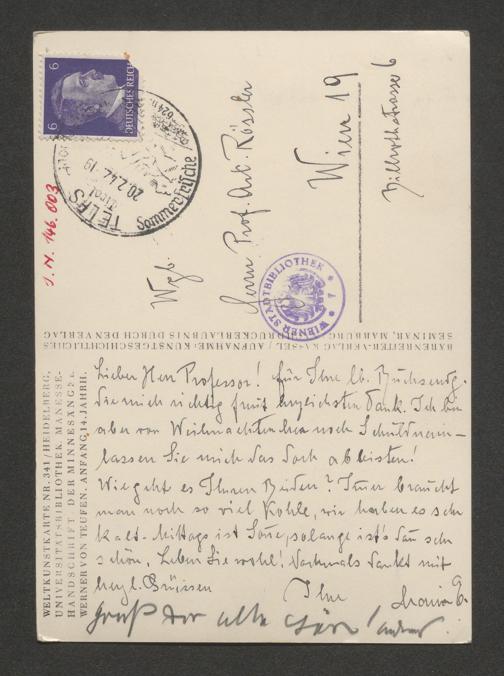 6 DEUTSCHES REICH 6
TELFS
Tirol
20.2.42.-19
Sommerfrische
624 m
J. N. 146.003
Wgb.
Herrn Prof. Art. Rössler
Wien 19
Billrothstrasse 6
WIENER STADTBIBLIOTHEK
BÄRENREITER-VERLAG KASSEL / AUFNAHME: KUNSTGESCHICHTLICHES
SEMINAR, MARBURG. DRUCKERLAUBNIS DURCH DEN VERLAG
WELTKUNSTKARTE NR. 341 / HEIDELBERG,
UNIVERSITÄTSBIBLIOTHEK, MANESSE-
HANDSCHRIFT DER MINNESÄNGER.
WERNER VON TEUFEN. ANFANG 14. JAHRH.
Lieber Herr Professor! Für Ihre lb. Büchsendg.
die mich richtig freut herzlichsten Dank. Ich bin
aber von Weihnachten her noch Schuldnerin -
lassen Sie mich das doch ableisten!
Wie geht es Ihnen Beiden? Immer braucht
man noch so viel Kohle, wir haben es sehr
kalt - Mittags ist Sonne, solange ist's dann sehr
schön. Leben Sie wohl! Nochmals dankt mit
herzl. Grüssen Ihre Maria G.
Gruß der alte